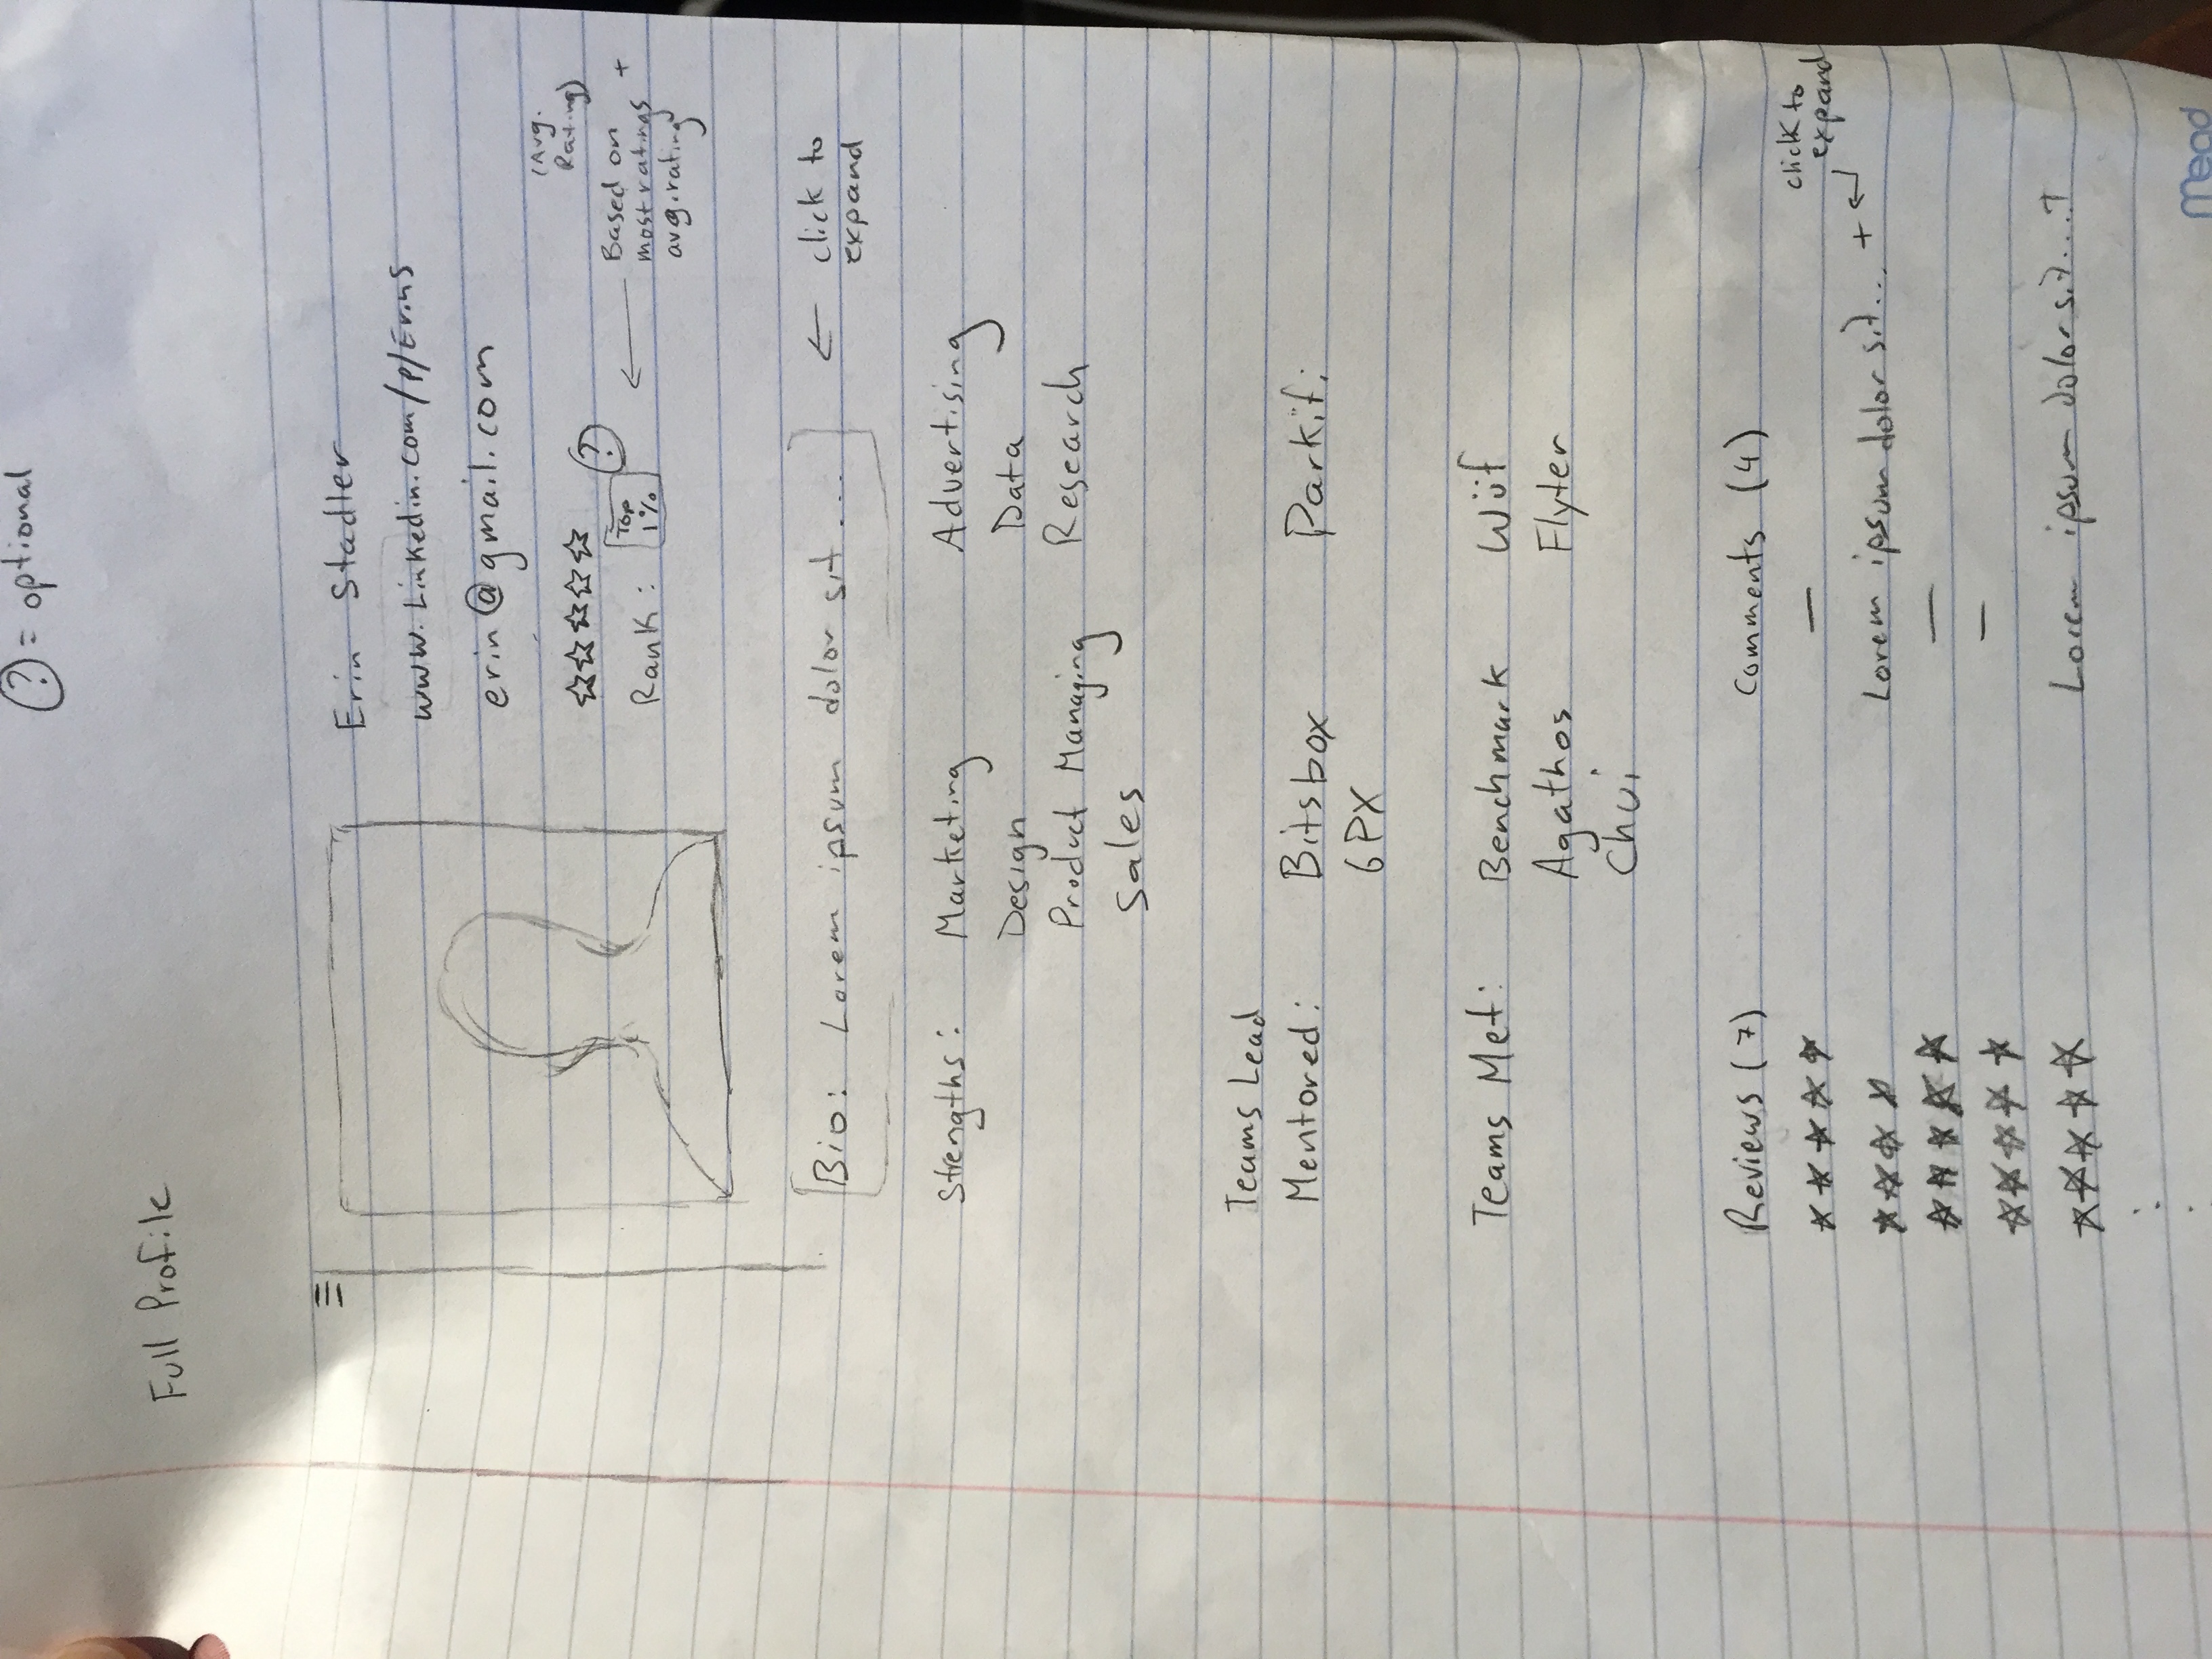 ? = optional
Full Profile
Erin Stadler
www.Linkedin.com/p/ErinS
erin@gmail.com
(Avg.
Rating)
Rank: Top
1%
?
Based on
most ratings +
avg. rating
Bio: Lorem ipsum dolor sit ...
click to
expand
Strengths: Marketing Advertising
Design Data
Product Managing Research
Sales
Teams Lead
Mentored: Bitsbox Parkifi
6PX
Teams Met: Benchmark Wüf
Agathos Flyter
Chui
Reviews (7) Comments (4)
click to
expand
Lorem ipsum dolor sit... +
Lorem ipsum dolor sit.... +
Mead